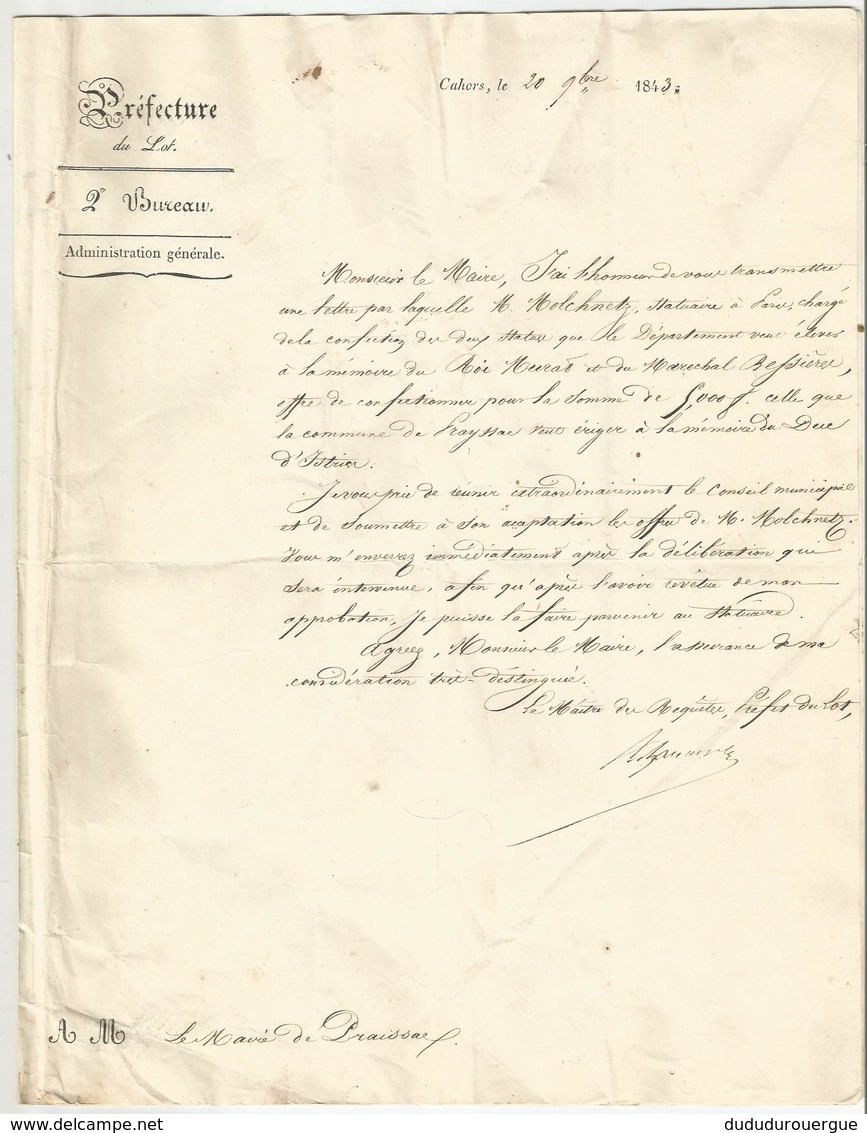 Cahors, le 20 9bre 1843.
Préfecture
du Lot.
2e Bureau.
Administration générale.
Monsieur le Maire, J'ai l'honneur de vous transmettre
une lettre par laquelle M. Molchnetz, statuaire à Paris, chargé
de la confection des deux statues que le Département veut élever
à la mémoire du Roi Murat et du Maréchal Bessières,
offre de confectionner pour la somme de 5,000 f. celle que
la commune de Prayssac veut ériger à la mémoire du Duc
d'Istrie.
Je vous prie de réunir extraordinairement le Conseil municipal
et de soumettre à son acceptation les offres de M. Molchnetz.
Vous m'enverrez immédiatement après la délibération qui
sera intervenue, afin qu'après l'avoir revêtue de mon
approbation, je puisse la faire parvenir au statuaire.
Agréez, Monsieur le Maire, l'assurance de ma
considération très-distinguée.
Le Maître des Requêtes, Préfet du Lot,
A M Le Maire de Praissac.
dududurouergue